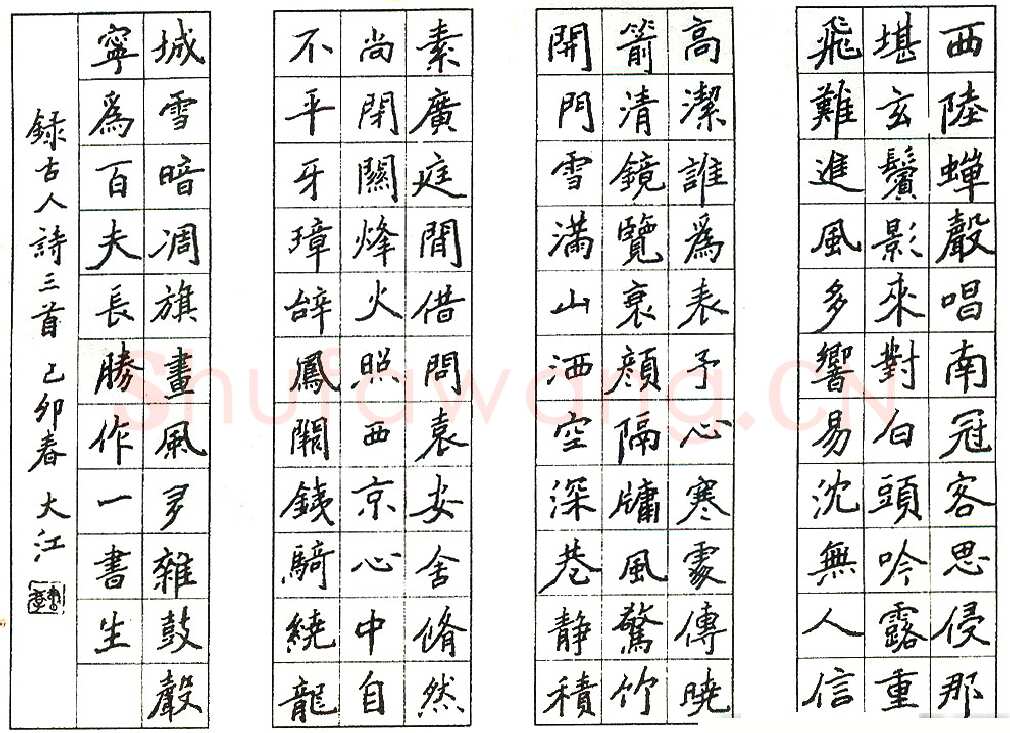 西陸蟬聲唱南冠客思侵那
堪玄鬢影來對白頭吟露重
飛難進風多響易沈無人信
高潔誰爲表予心寒傳曉
箭清鏡覽衰顔隔牖風驚竹
開門雪滿山洒空深巷靜積
素廣庭閒借問袁安舍翛然
尚閉關烽火照西京心中自
不平牙璋辭鳳闕鐵騎繞龍
城雪暗凋旗畫風多雜鼓聲
寧爲百夫長勝作一書生
録古人詩三首 己卯春 大江
Shufawang.CN